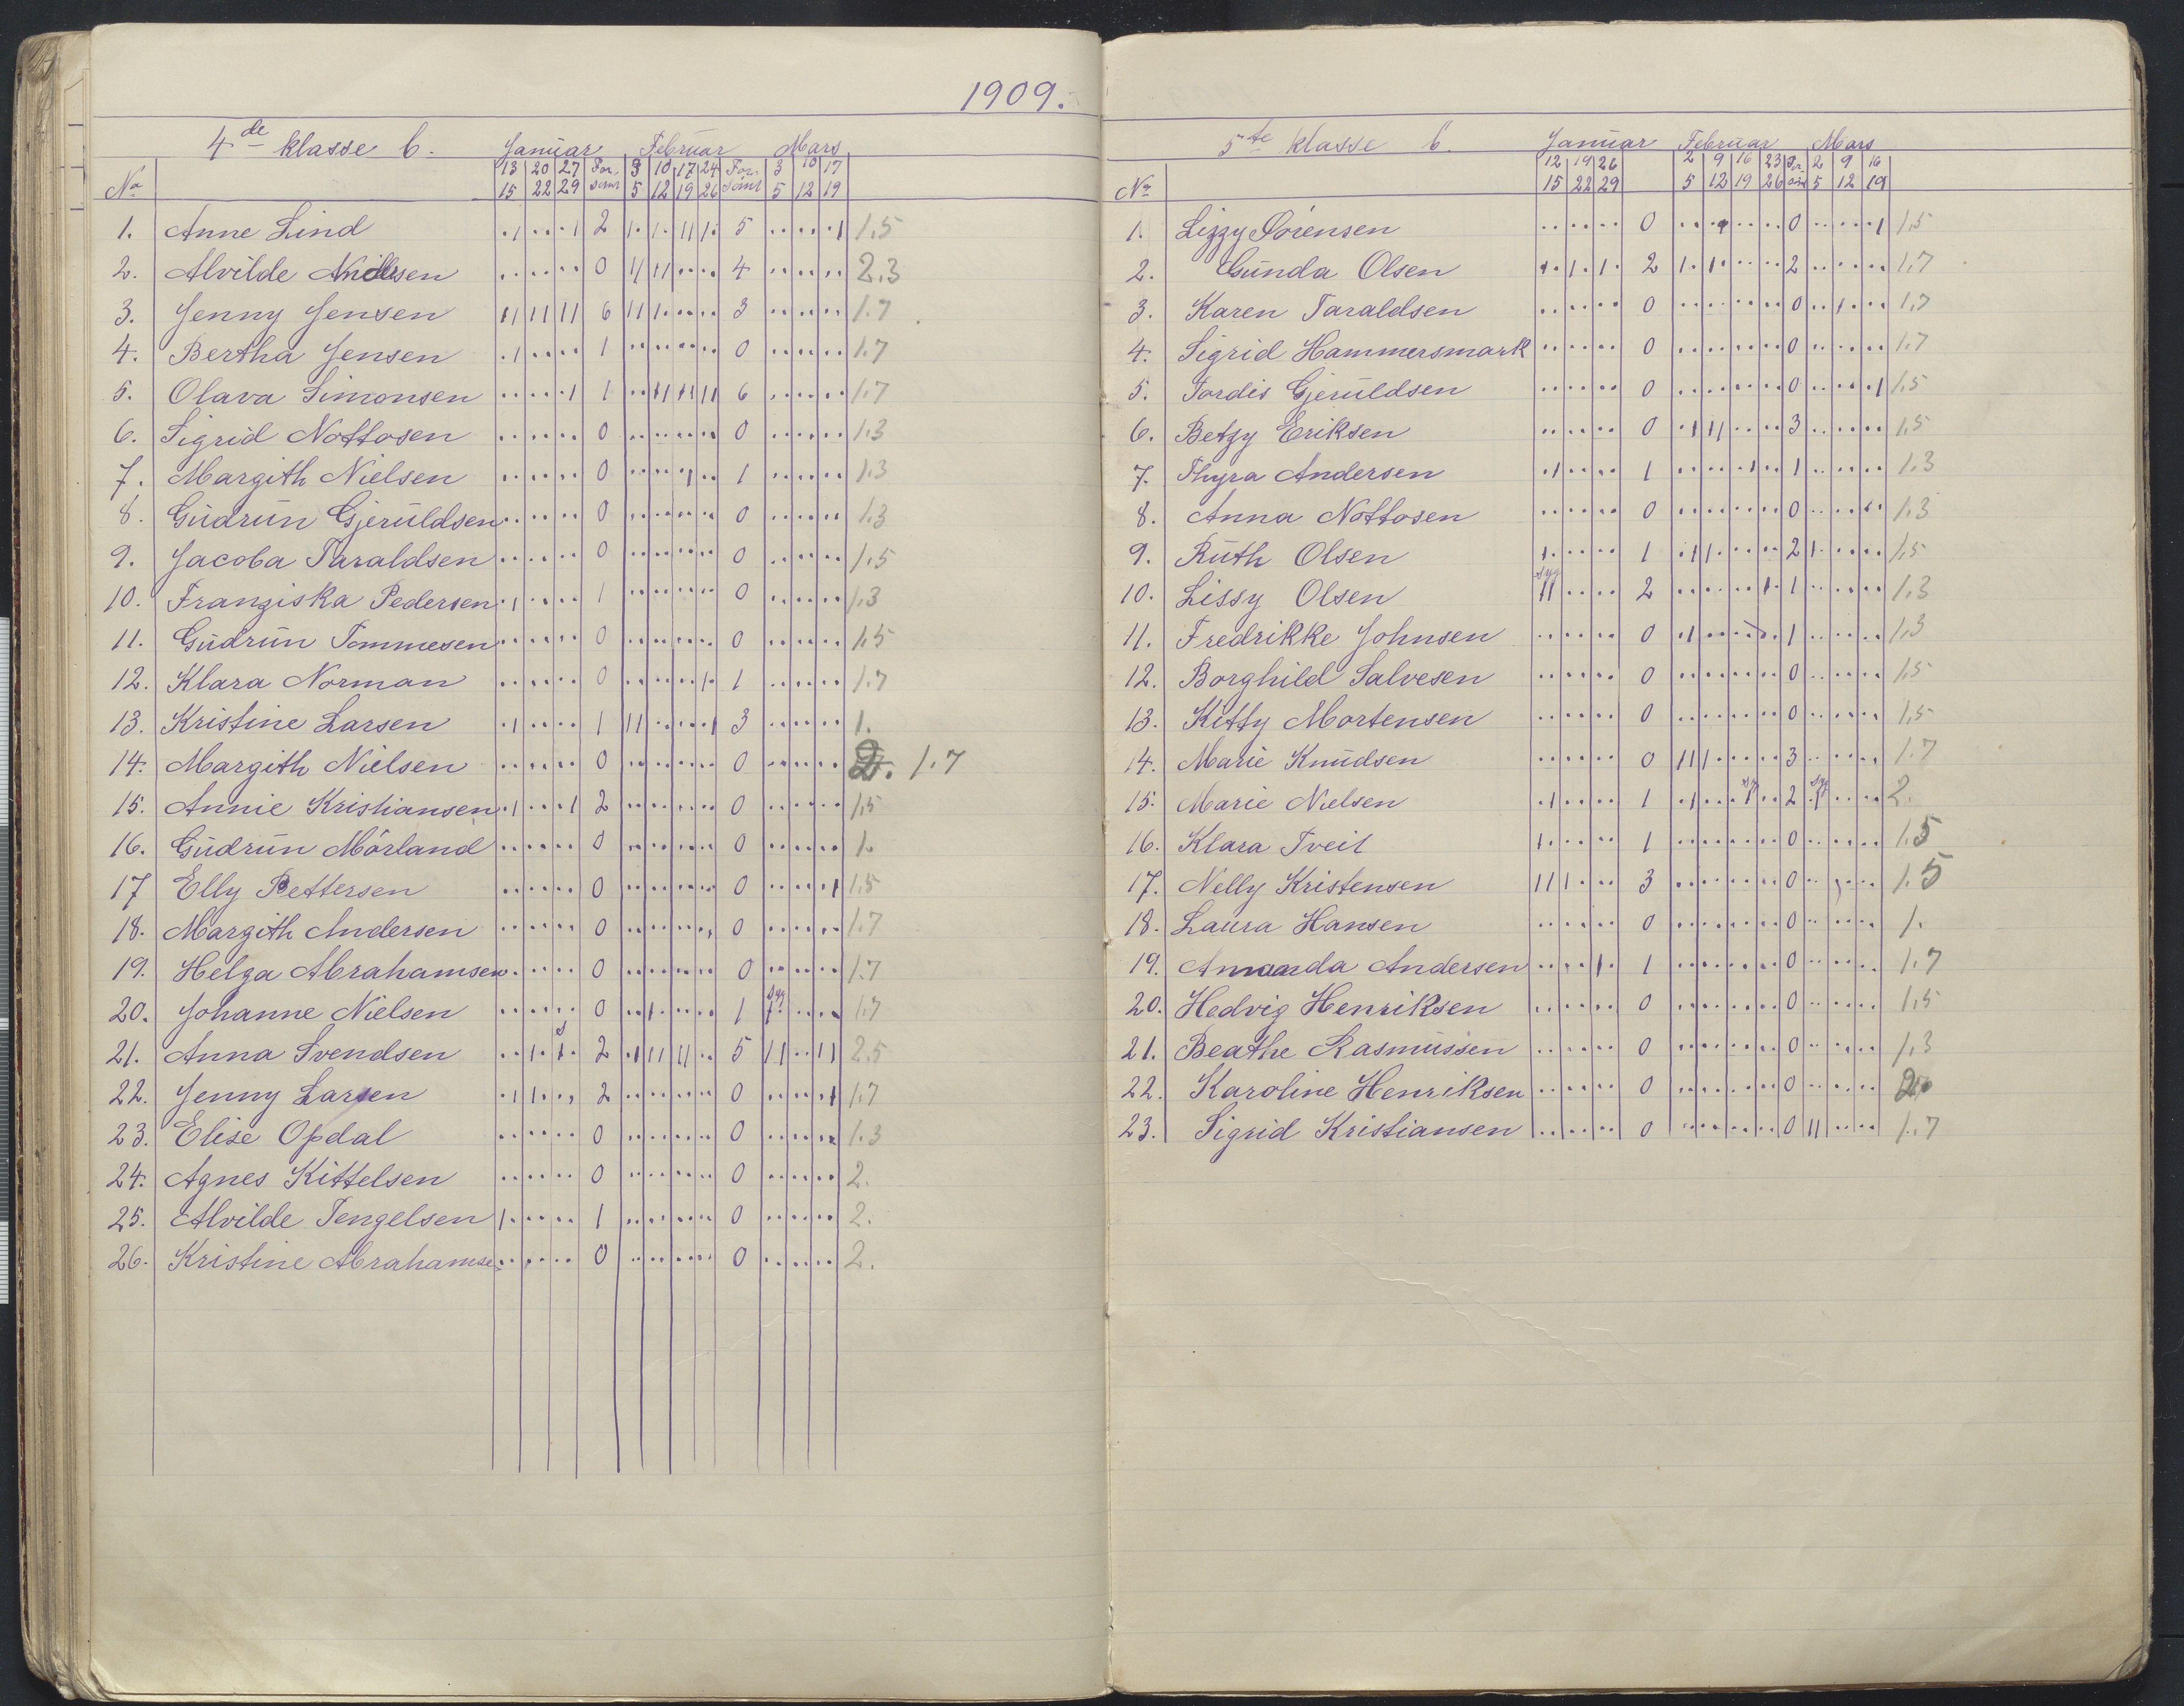 1909.
4de klasse b. Januar Februar Mars
13 20 27 For- 3 10 17 24 For- 3 10 17
No 15 22 29 sömt 5 12 19 26 sömt 5 12 19
1. Anne Lind 2 5 1.5
2. Alvilde Nielsen 0 4 2.3
3. Jenny Jensen 6 3 1.7
4. Bertha Jensen 1 0 1.7
5. Olava Simonsen 1 6 1.7
6. Sigrid Nottosen 0 0 1.3
7. Margith Nielsen 0 1 1.3
8. Gudrun Gjeruldsen 0 0 1.3
9. Jacoba Taraldsen 0 0 1.5
10. Franziska Pedersen 1 0 1.3
11. Gudrun Tommesen 0 0 1.5
12. Klara Norman 0 1 1.7
13. Kristine Larsen 1 3 1.
14. Margith Nielsen 0 0 2. 1.7
15. Annie Kristiansen 2 0 1.5
16. Gudrun Mörland 0 0 1.
17 Elly Pettersen 0 0 1.5
18. Margith Andersen 0 0 1.7
19. Helga Abrahamsen 0 0 1.7
20. Johanne Nielsen 0 1 syg 1.7
21. Anna Svendsen s 2 5 2.5
22. Jenny Larsen 2 0 1.7
23. Elise Opdal 0 0 1.3
24. Agnes Kittelsen 0 0 2.
25. Alvilde Tengelsen 1 0 2.
26. Kristine Abrahamse 0 0 2.
5te klasse b. Januar Februar Mars
12 19 26 2 9 16 23 For 2 9 16
No 15 22 29 5 12 19 26 söm 5 12 19
1. Lizzy Sörensen 0 0 1.5
2. Gunda Olsen 2 2 1.7
3. Karen Taraldsen 0 0 1.7
4. Sigrid Hammersmark 0 0 1.7
5. Tordis Gjeruldsen 0 0 1.5
6. Betzy Eriksen 0 3 1.5
7. Thyra Andersen 1 1 1.3
8. Anna Nottosen 0 0 1.3
9. Ruth Olsen 1 2 1.5
10. Lissy Olsen syg 2 1 1.3
11. Fredrikke Johnsen 0 1 1.3
12. Borghild Salvesen 0 0 1.5
13. Kitty Mortensen 0 0 1.5
14. Marie Knudsen 0 3 1.7
15. Marie Nielsen 1 sy 2 syg 2.
16. Klara Tveit 1 0 1.5
17. Nelly Kristensen 3 0 1.5
18. Laura Hansen 0 0 1.
19. Amanda Andersen 1 0 1.7
20. Hedvig Henriksen 0 0 1.5
21. Beathe Rasmussen 0 0 1.3
22. Karoline Henriksen 0 0 2.
23. Sigrid Kristiansen 0 0 1.7